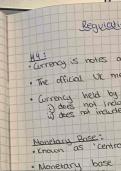 Regulati
M4:
• Currency is notes a
• The offical UK me
• Currency held by
i) does not inclu
ii) does not include
Monetary Base:
• Known as 'centra
• Monetary base